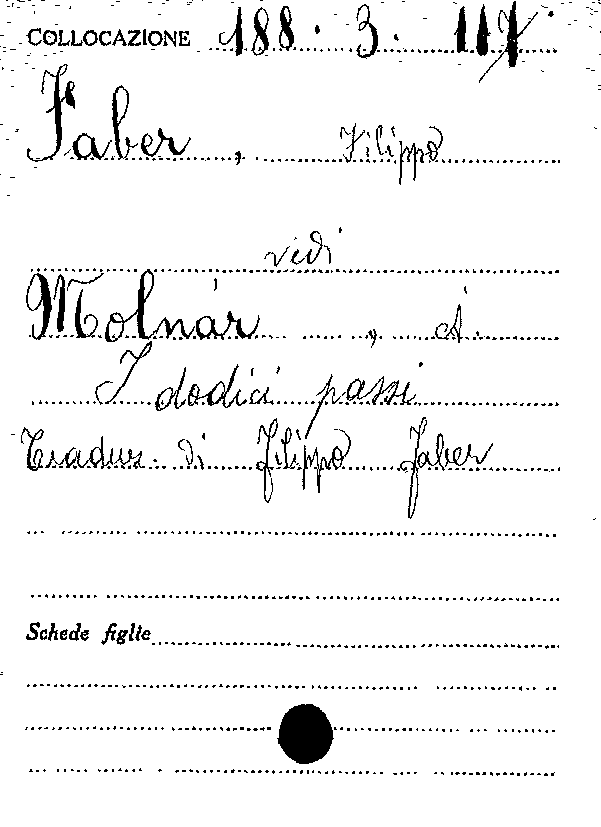 COLLOCAZIONE 188.3.117
Faber, Filippo
vedi
Molnár, A.
I dodici passi
Traduz. di Filippo Faber
Schede figlie